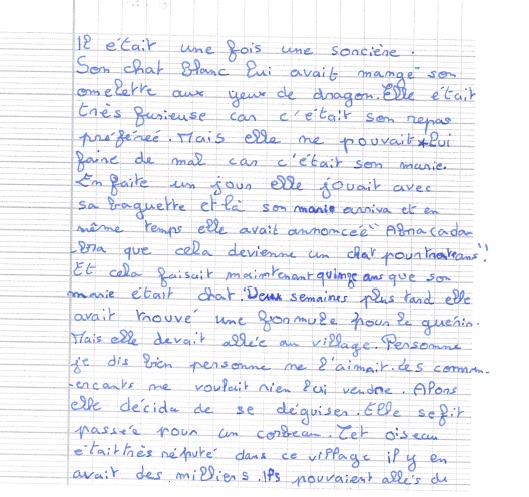 Il était une fois une sorcière.
Son chat blanc lui avait mangé son
omelette aux yeux de dragon. Elle était
très furieuse car c'était son repas
préférée. Mais elle ne pouvait lui
faire de mal car c'était son marie.
En faite un jour elle jouait avec
sa baguette et là son marie arriva et en
même temps elle avait annoncée "Abracadar
-bra que cela devienne un chat pour trente ans"!
Et cela faisait maintenant quinze ans que son
marie était chat. Deux semaines plus tard elle
avait trouvé une formule pour le guérir.
Mais elle devait allée au village. Personne
je dis bien personne ne l'aimait. Les comm-
-encants ne voulait rien lui vendre. Alors
elle décida de se déguiser. Elle se fit
passée pour un corbeau. Cet oiseau
était très réputé dans ce village il y en
avait des milliers. Ils pouvaient allés du